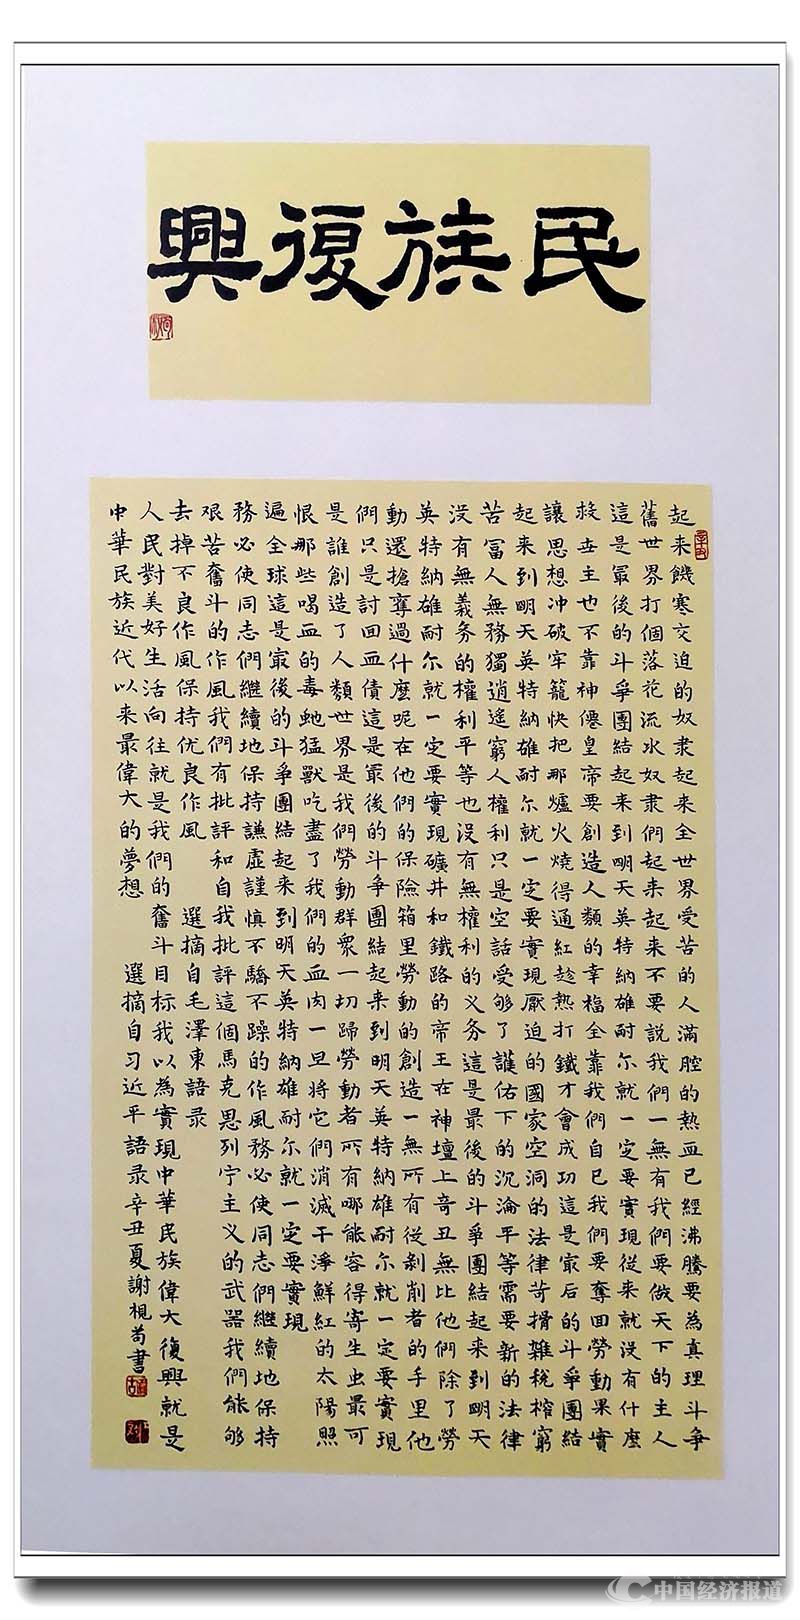 民族復興
起来饑寒交迫的奴隶起来全世界受苦的人滿腔的熱血已經沸騰要為真理斗爭
舊世界打個落花流水奴隶們起来起来不要説我們一無有我們要做天下的主人
這是最後的斗爭團結起来到明天英特納雄耐尔就一定要實現從来就没有什麼
救世主也不靠神僊皇帝要創造人類的幸福全靠我們自己我們要奪回勞動果實
讓思想冲破牢籠快把那爐火燒得通紅趁熱打鐵才會成功這是最后的斗爭團結
起来到明天英特納雄耐尔就一定要實現壓迫的國家空洞的法律苛捐雜稅榨窮
苦冨人無務獨逍遥窮人權利只是空話受够了護佑下的沉淪平等需要新的法律
没有無義务的權利平等也没有無權利的义务這是最後的斗爭團結起来到明天
英特納雄耐尔就一定要實現礦井和鐵路的帝王在神壇上奇丑無比他們除了勞
動還搶奪過什麼呢在他們的保險箱里勞動的創造一無所有從剝削者的手里他
們只是討回血債這是最後的斗爭團結起来到明天英特納雄耐尔就一定要實現
是誰創造了人類世界是我們勞動群衆一切歸勞動者所有哪能容得寄生虫最可
恨那些喝血的毒虵猛獸吃盡了我們的血肉一旦將它們消滅干淨鮮紅的太陽照
遍全球這是最後的斗爭團結起来到明天英特納雄耐尔就一定要實現
務必使同志們繼續地保持謙虚謹慎不驕不躁的作風務必使同志們繼續地保持
艰苦奮斗的作風我們有批評和自我批評這個馬克思列宁主义的武器我們能够
去掉不良作風保持优良作風 選摘自毛澤東語录
人民對美好生活向往就是我們的奮斗目标我以為實現中華民族偉大復興就是
中華民族近代以来最偉大的夢想 選摘自习近平語录辛丑夏謝梘苟書
中国经济报道